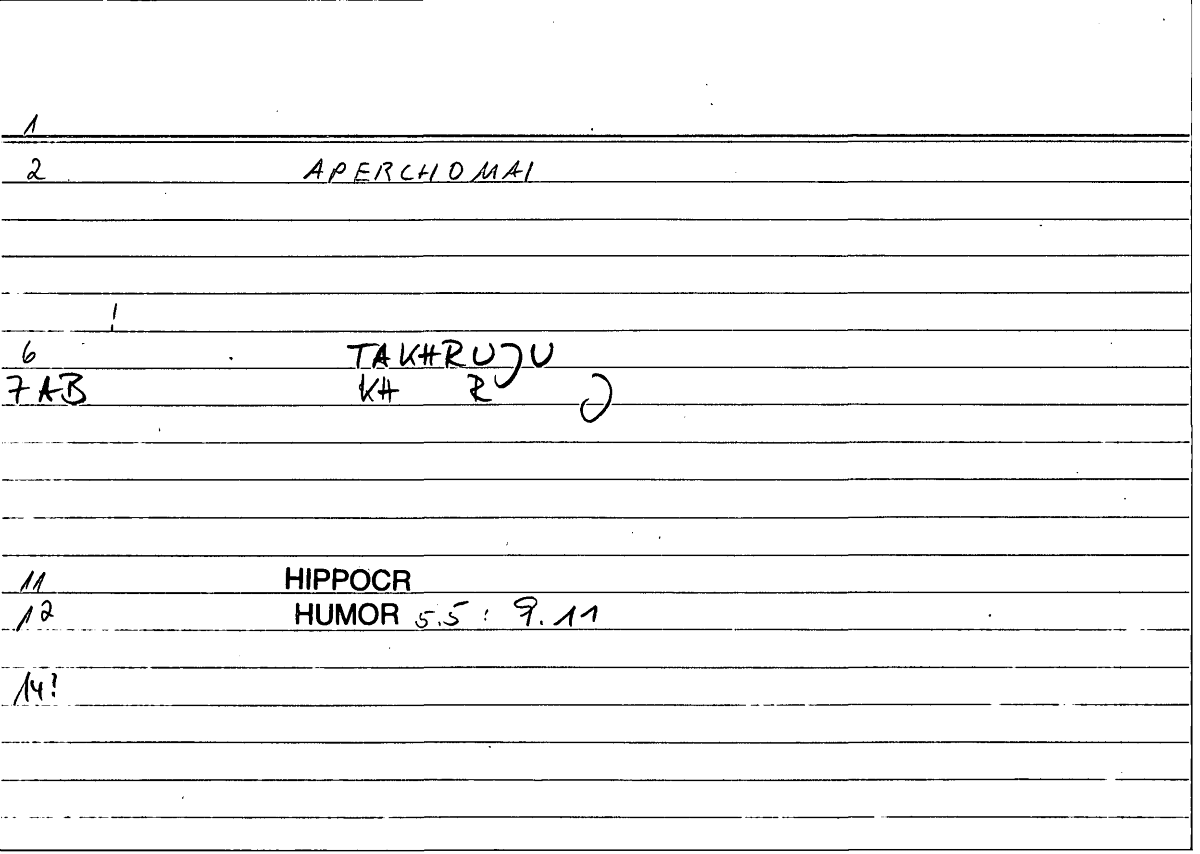 1
2 APERCHOMAI
!
6 TAKHRUJU
7AB KH R J
11 HIPPOCR
12 HUMOR 5.5 : 9.11
14!